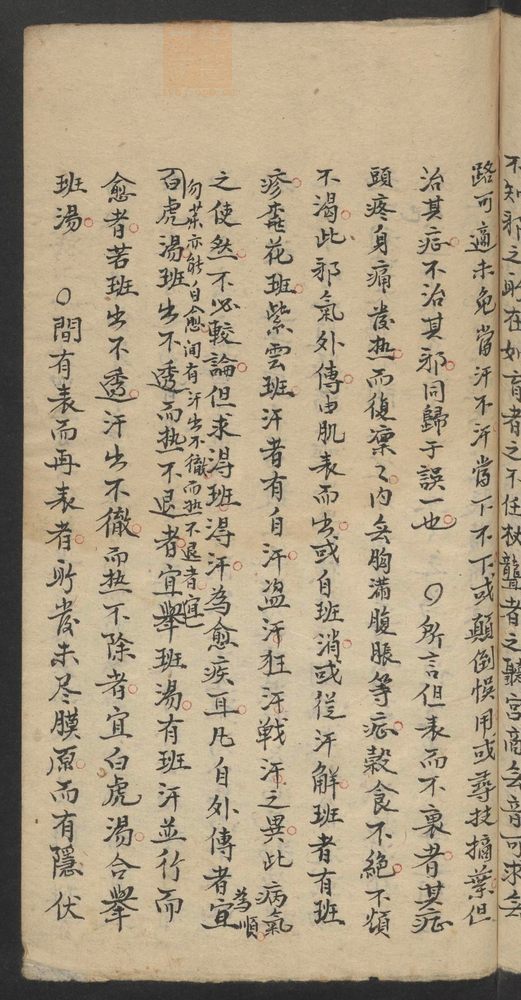 不知邪之所在如盲者之不任杖聾者之聽宮商無音可求無
路可適未免當汗不汗當下不下或顛倒悞用或尋枝摘葉但
治其症不治其邪同歸于誤一也 〇所言但表而不裏者其症
頭疼身痛發热而復凜〻内無胸滿腹脹等症穀食不絶不煩
不渴此邪氣外傳由肌表而出或自班消或從汗解班者有班
疹桃花班紫雲班汗者有自汗盗汗狂汗戰汗之異此病氣
之使然不必較論但求淂班淂汗為愈疾耳凡自外傳者為順
勿藥亦能自愈间有汗出不徹而热不退者宜
白虎湯班出不透而热不退者宜舉班湯有班汗並行而
愈者若班出不透汗出不徹而热不除者宜白虎湯合舉
班湯 〇間有表而再表者所發未尽膜原而有隱伏